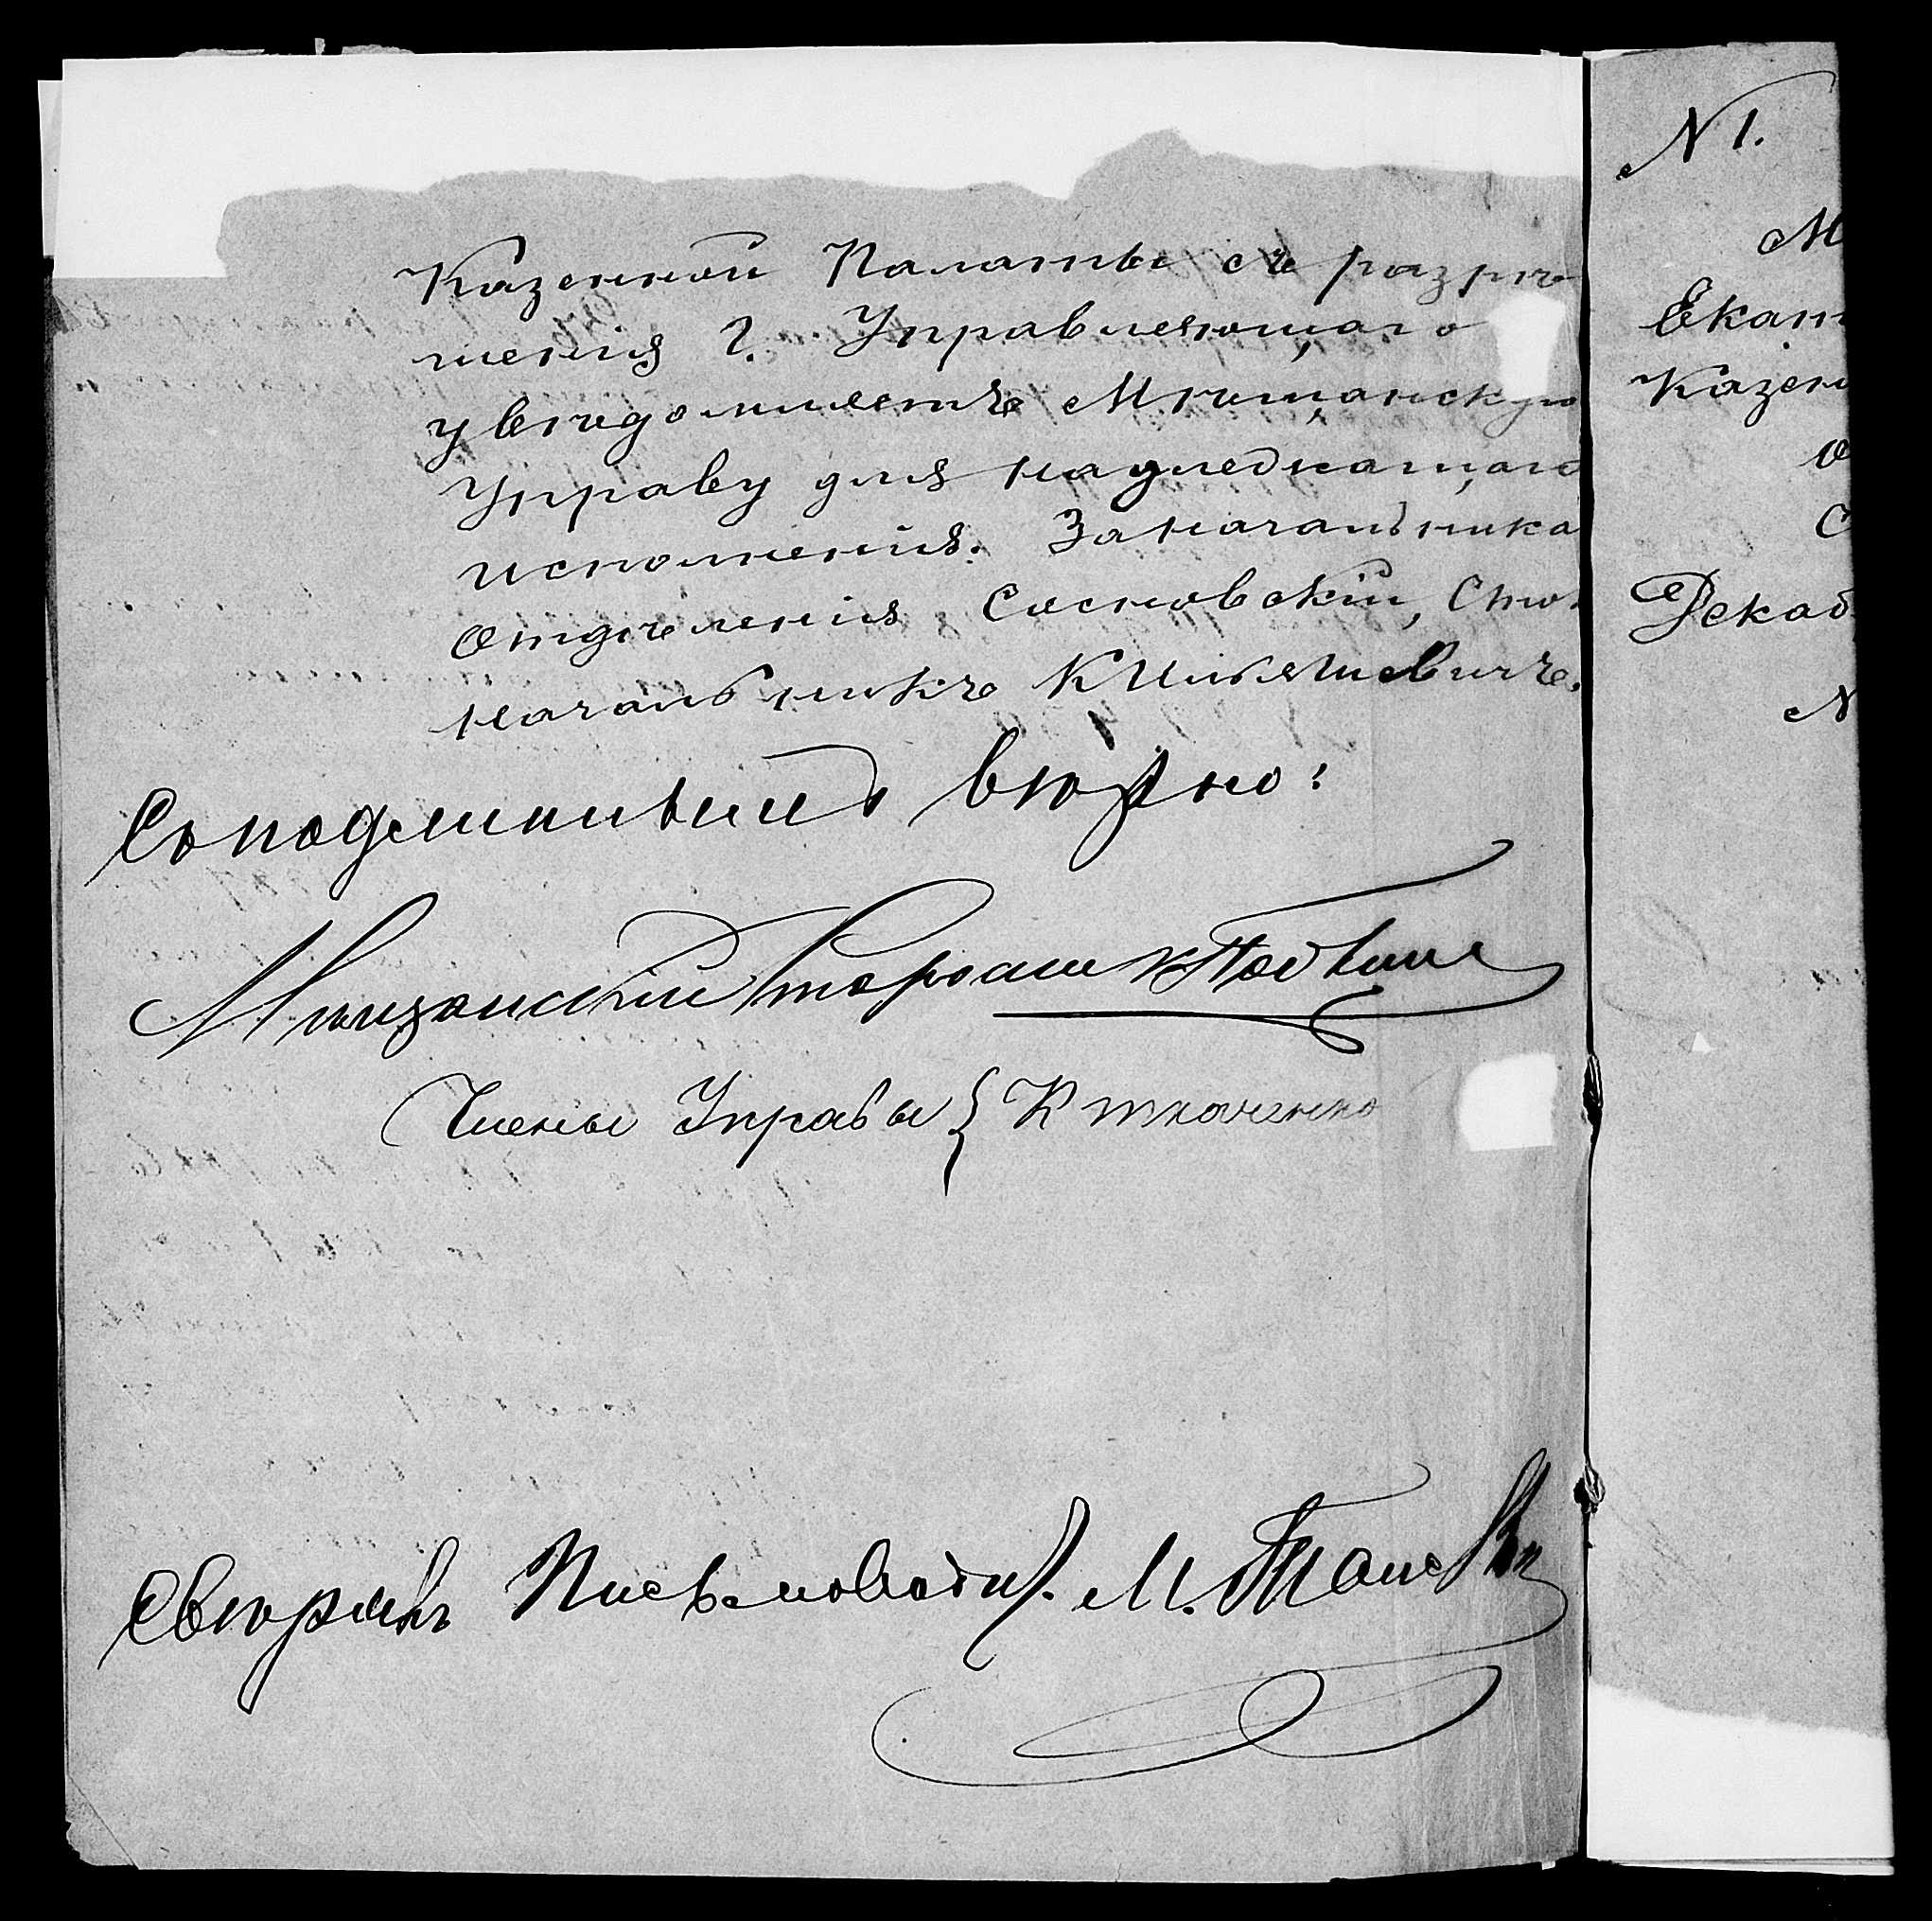 Казенной Палаты съ разрѣ
шенія Г. Управляющаго
увѣдомляетъ Мѣщанскую
Управу для надлежащаго
исполненія. За Начальника
Отдѣленія Сосновскій, Сто-
начальникъ Кильяшевичъ.
Съ подлиннымъ вѣрно:
Мѣщанскій Староста
Члены Управы { К Ткаченко
Свѣрялъ Письмоводит. М.
N 1.
М
Екат
Казен
О
С
Декаб
N